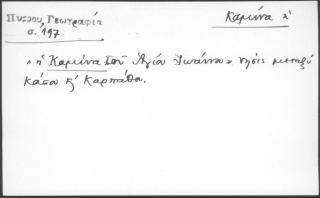 Πίκρου, Γεωγραφία
σ. 197
Καμίνα ἡ
"ἡ Καμίνα τοῦ Ἁγίου Ἰωάννου" νησὶς μεταξὺ
Κάσου κ' Καρπάθου.